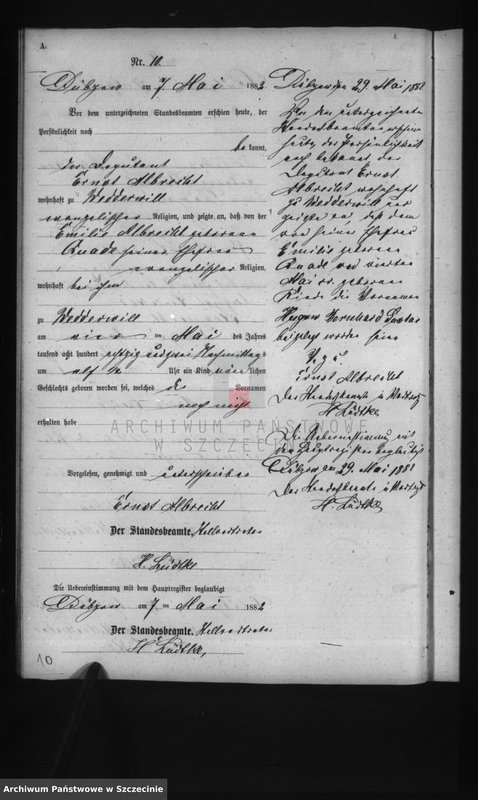 A.
Nr. 10
Dübzow am 7 Mai 1882
Vor dem unterzeichneten Standesbeamten erschien heute, der
Persönlichkeit nach
be kannt,
der Deputant
Ernst Albrecht
wohnhaft zu Wedderwill
evangelischer Religion, und zeigte an, daß von der
Emilie Albrecht geborenen
Quade seiner Ehefrau
evangelischer Religion,
wohnhaft bei ihm
zu Wedderwill
am vier ten Mai des Jahres
tausend acht hundert achtzig und zwei Nachmittags
um elf Uhr ein Kind männlichen
Geschlechts geboren worden sei, welches Vornamen
noch nicht
erhalten habe
Vorgelesen, genehmigt und unterschrieben
Ernst Albrecht
Der Standesbeamte. Stellvertreter
H. Lüdtke
Die Uebereinstimmung mit dem Hauptregister beglaubigt
Dübzow am 7 ten Mai 1882
Der Standesbeamte. Stellvertreter
H. Lüdtke,
10
Dübzow den 29. Mai 1882
Vor dem unterzeichneten
Standesbeamten erschien
heute, der Persönlichkeit
nach bekannt der
Deputant Ernst
Albrecht wohnhaft
zu Wedderwill und
zeigte an, daß dem
von seiner Ehefrau
Emilie geborenen
Quade am vierten
Mai cr. geborenen
Kinde die Vornamen
Bernhard Gustav
beigelegt worden seien
V. g. u.
Ernst Albrecht
Der Standesbeamte in Vertretg
H Lüdtke
Die Uebereinstimmung mit
dem Hauptregister beglaubigt
Dübzow am 29. Mai 1882
Der Standesbeamte in Vertretg
H. Lüdtke
ARCHIWUM PAŃSTWOWE
W SZCZECINIE
Archiwum Państwowe w Szczecinie